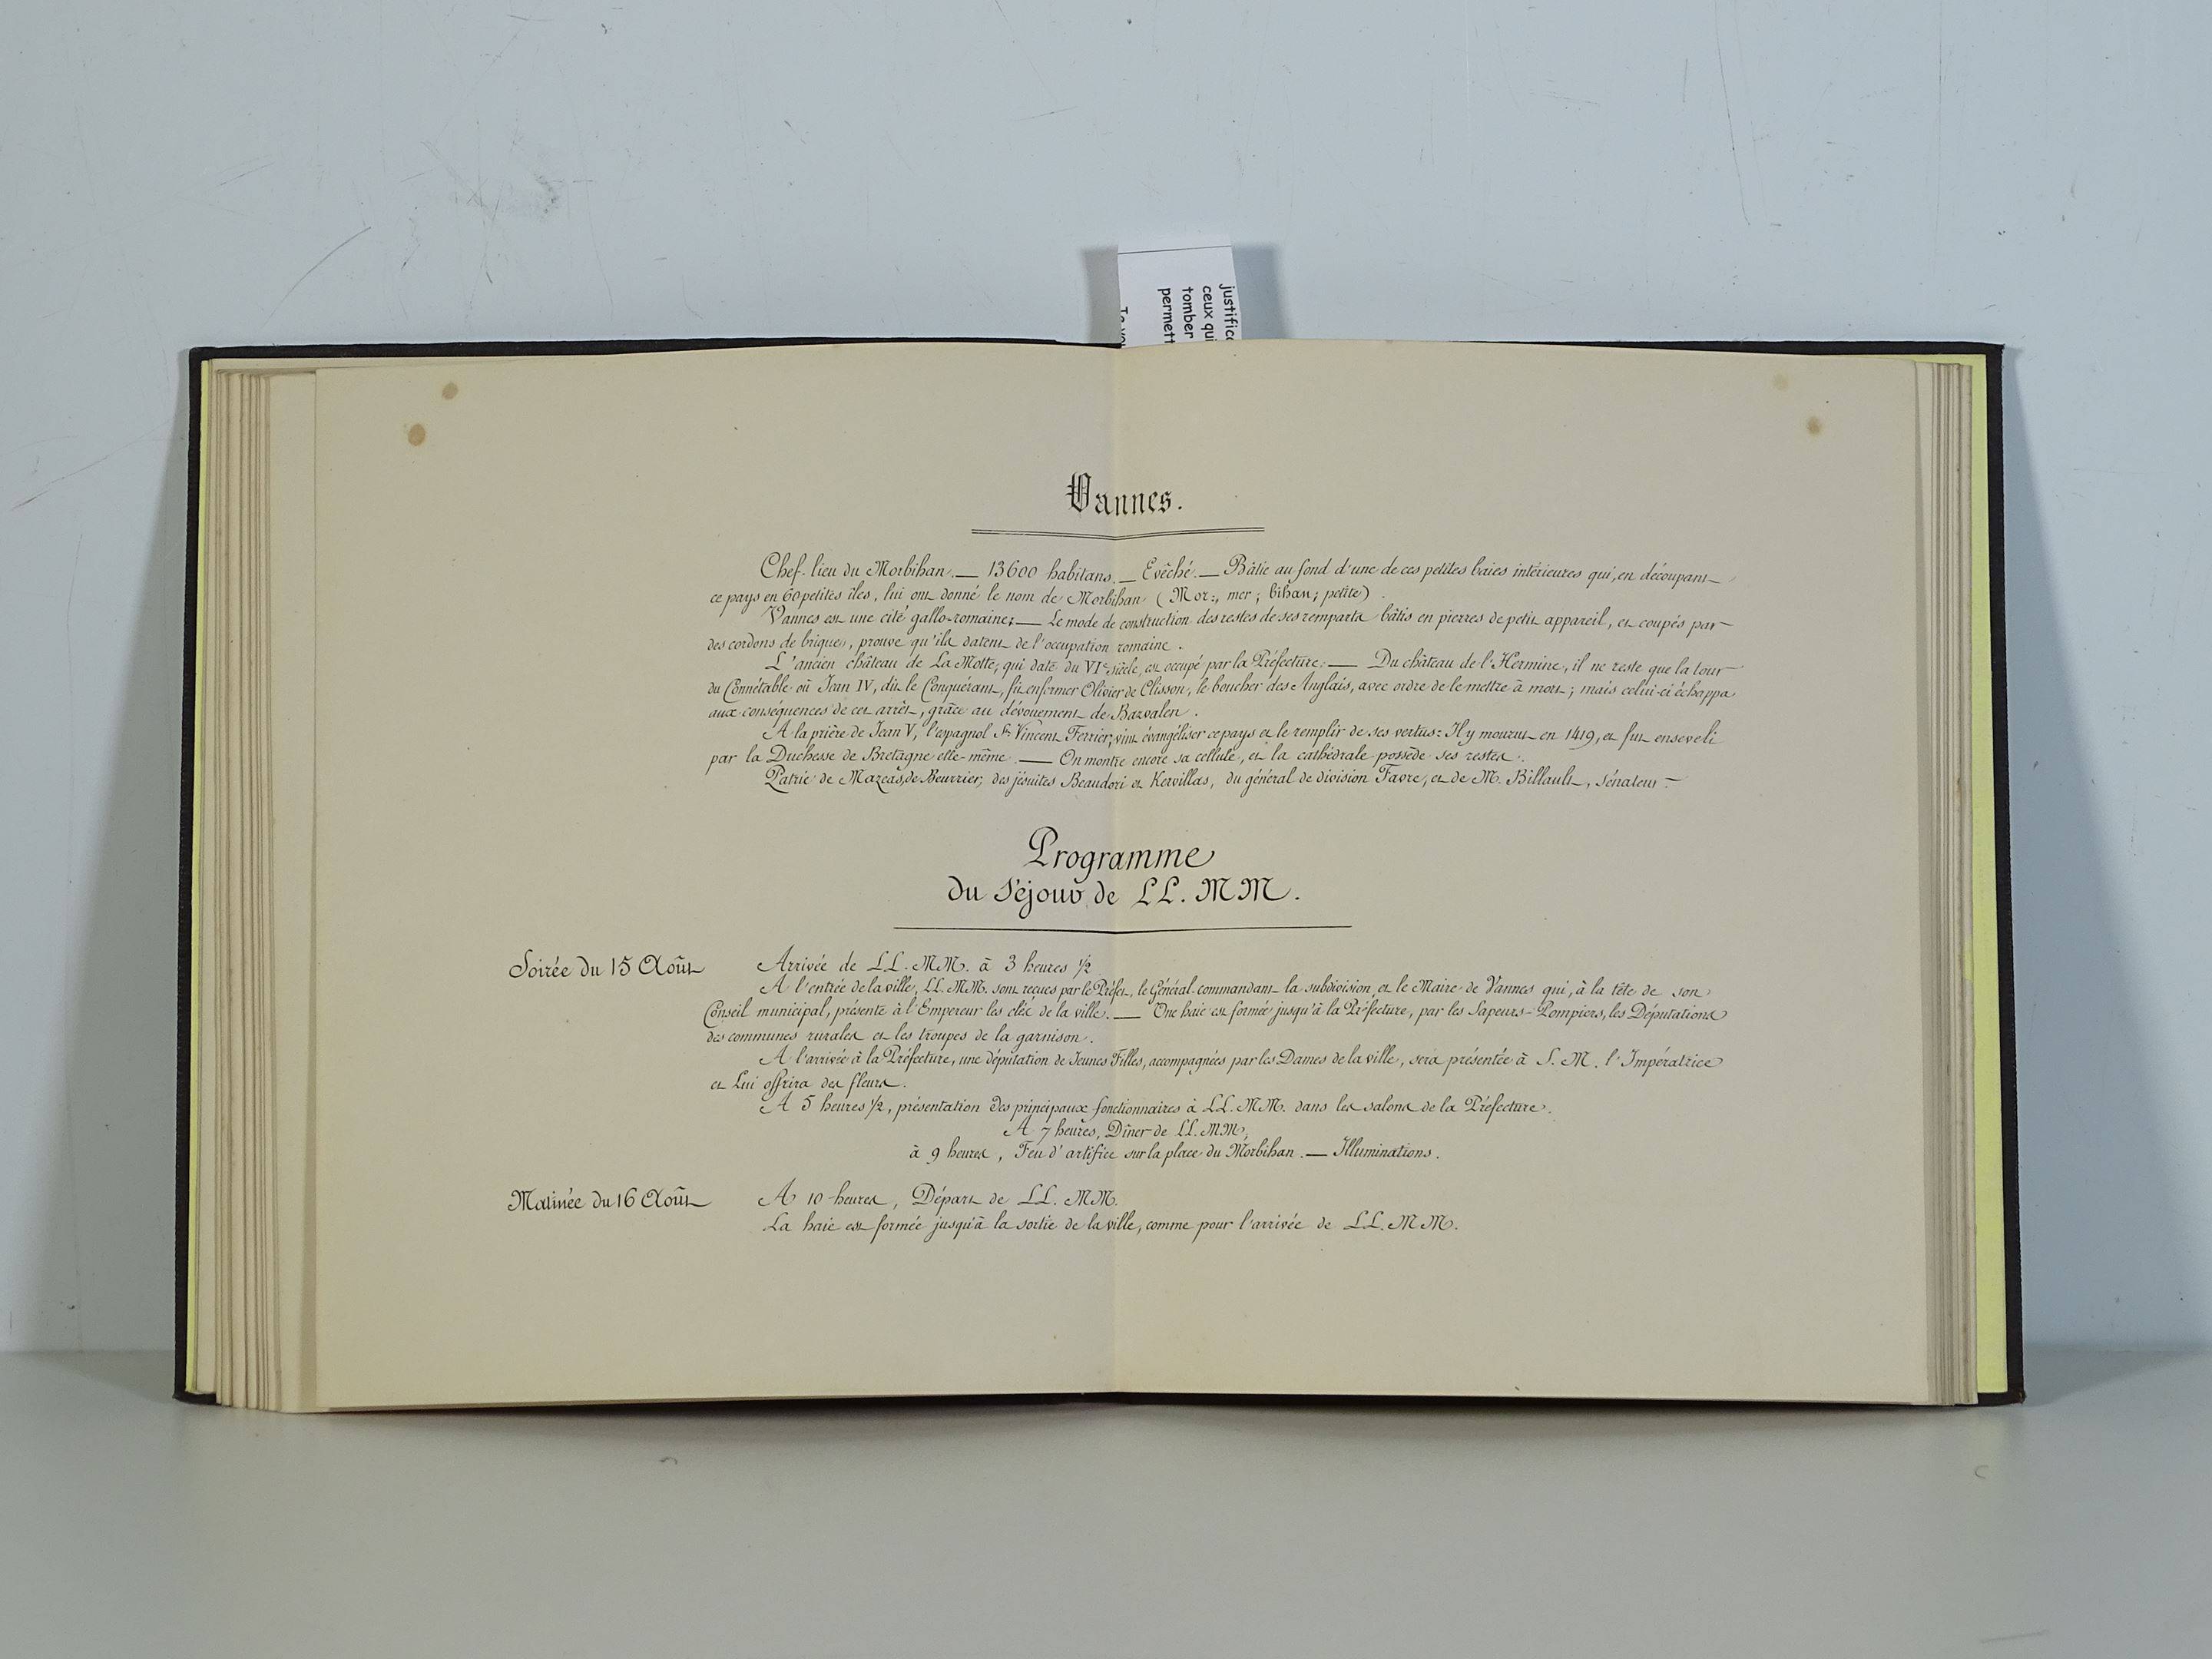 justific
ceux qui
tomber
permett
Vannes.
Chef-lieu du Morbihan. — 13600 habitans. — Evêché. — Bâtie au fond d'une de ces petites baies intérieures qui, en découpant
ce pays en 60 petites îles, lui ont donné le nom de Morbihan (Mor:, mer; bihan; petite).
Vannes est une cité gallo-romaine; — Le mode de construction des restes de ses remparts bâtis en pierres de petit appareil, et coupés par
des cordons de briques, prouve qu'ils datent de l'occupation romaine.
L'ancien château de La Motte, qui date du VIe siècle, est occupé par la Préfecture: — Du château de l'Hermine, il ne reste que la tour
du Connétable où Jean IV, dit le Conquérant, fit enfermer Olivier de Clisson, le boucher des Anglais, avec ordre de le mettre à mort; mais celui-ci échappa
aux conséquences de cet arrêt, grâce au dévouement de Bazvalen.
A la prière de Jean V, l'espagnol St Vincent Ferrier, vint évangéliser ce pays et le remplir de ses vertus: Il y mourut en 1419, et fut enseveli
par la Duchesse de Bretagne elle-même. — On montre encore sa cellule, et la cathédrale possède ses restes.
Patrie de Mazeas, de Beurrier, des jésuites Beaudori et Kervillas, du général de division Favre, et de M. Billault, Sénateur.
Programme
du Séjour de LL. MM.
Soirée du 15 Août
Arrivée de LL. MM. à 3 heures 1/2
A l'entrée de la ville, LL. MM. sont reçues par le Préfet, le Général commandant la subdivision et le Maire de Vannes qui, à la tête de son
Conseil municipal, présente à l'Empereur les clés de la ville. — Une haie est formée jusqu'à la Préfecture, par les Sapeurs-Pompiers, les Députations
des communes rurales et les troupes de la garnison.
A l'arrivée à la Préfecture, une députation de Jeunes Filles, accompagnées par les Dames de la ville, sera présentée à S. M. l'Impératrice
et Lui offrira des fleurs.
A 5 heures 1/2, présentation des principaux fonctionnaires à LL. MM. dans les salons de la Préfecture.
A 7 heures, Dîner de LL. MM,
à 9 heures, Feu d'artifice sur la place du Morbihan. — Illuminations.
Matinée du 16 Août
A 10 heures, Départ de LL. MM.
La haie est formée jusqu'à la sortie de la ville, comme pour l'arrivée de LL. MM.